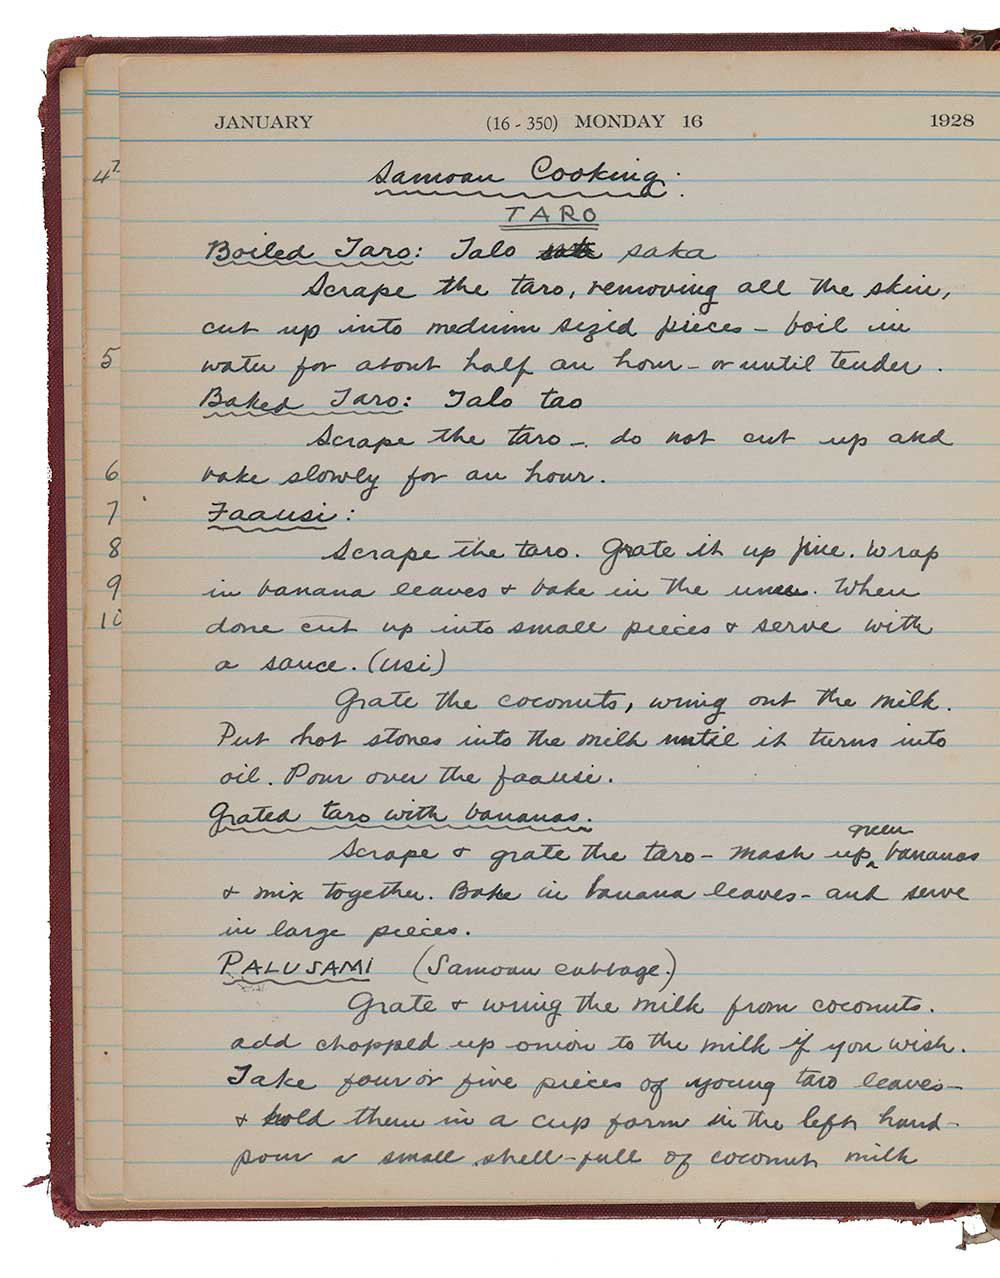 JANUARY (16 - 350) MONDAY 16 1928
Samoan Cooking:
TARO
Boiled Taro: Talo saka
Scrape the taro, removing all the skin,
cut up into medium sized pieces - boil in
water for about half an hour - or until tender.
Baked Taro: Talo tao
Scrape the taro - do not cut up and
bake slowly for an hour.
Faausi:
Scrape the taro. Grate it up fine. Wrap
in banana leaves & bake in the umu. When
done cut up into small pieces & serve with
a sauce. (usi)
Grate the coconuts, wring out the milk.
Put hot stones into the milk until it turns into
oil. Pour over the faausi.
Grated taro with bananas.
Scrape & grate the taro - mash up green bananas
& mix together. Bake in banana leaves - and serve
in large pieces.
PALUSAMI (Samoan cabbage.)
Grate & wring the milk from coconuts.
add chopped up onion to the milk if you wish.
Take four or five pieces of young taro leaves -
& hold them in a cup form in the left hand -
pour a small shell-full of coconut milk
4
5
6
7
8
9
10